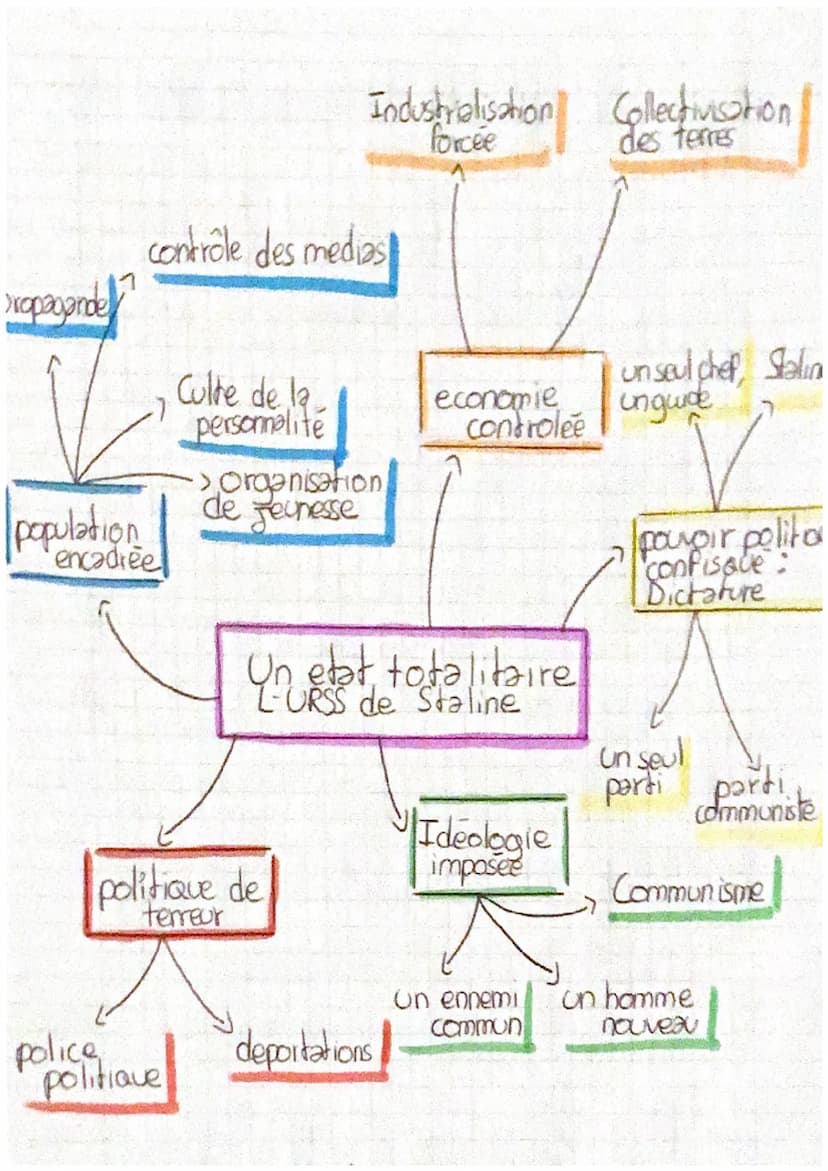 Industrialisation
forcée
Collectivisation
des terres
contrôle des medias
propagande
Culte de la
personnalité
organisation
de jeunesse
population
encadrée
economie
controleé
un seul chef,
un guide
Stalin
pouvoir politq
confisqué :
Dictature
Un etat totalitaire
L'URSS de Staline
un seul
parti
parti
communiste
politique de
terreur
police
politique
deportations
Idéologie
imposée
Communisme
un ennemi
commun
un homme
nouveau